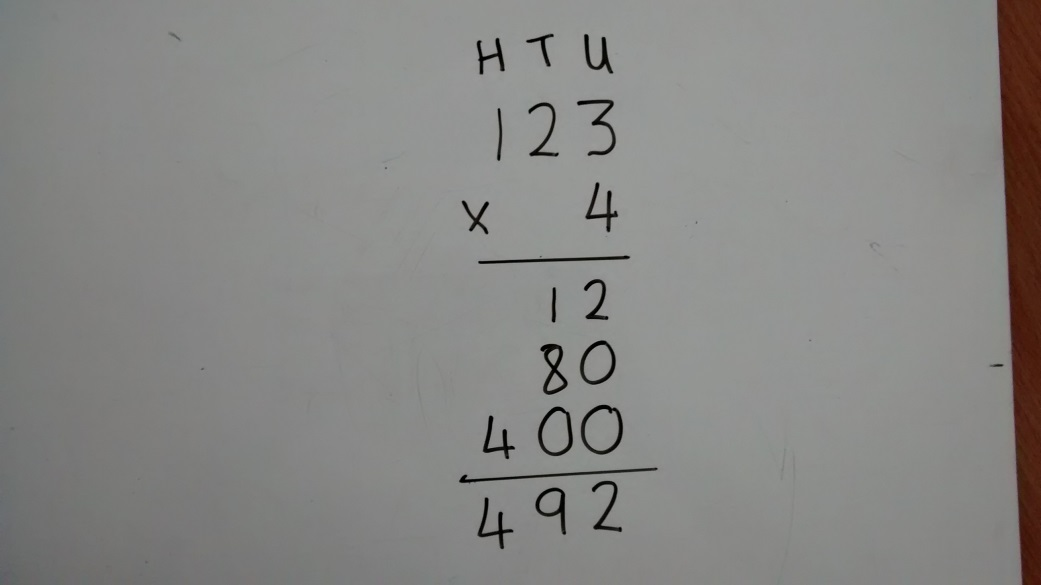 H T U
1 2 3
x 4
1 2
8 0
4 0 0
4 9 2